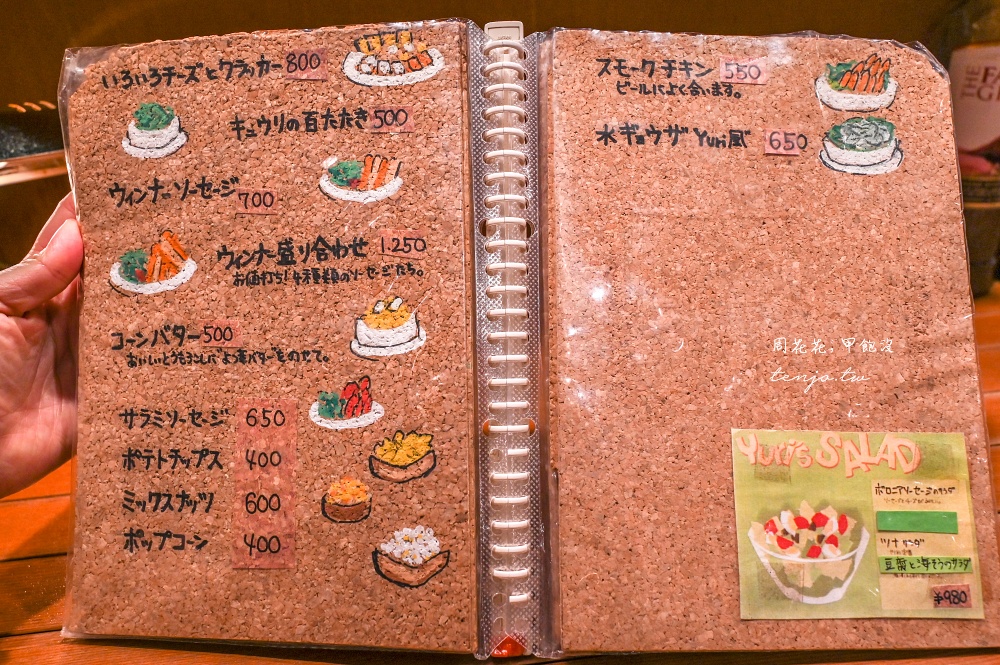 いろいろチーズとクラッカー 800
キュウリの百たたき 500
ウィンナーソーセージ 700
ウィンナー盛り合わせ 1.250
お値打ち!4種類のソーセージたち。
コーンバター 500
おいしいとうもろこしによつ葉バターをのせて。
サラミソーセージ 650
ポテトチップス 400
ミックスナッツ 600
ポップコーン 400
スモークチキン 550
ビールによく合います。
水ギョウザ Yuri風 650
周花花，甲飽沒
tenjo.tw
Yuri's SALAD
ボロニアソーセージのサラダ
ツナサラダ
豆腐と海そうのサラダ
¥980
THE